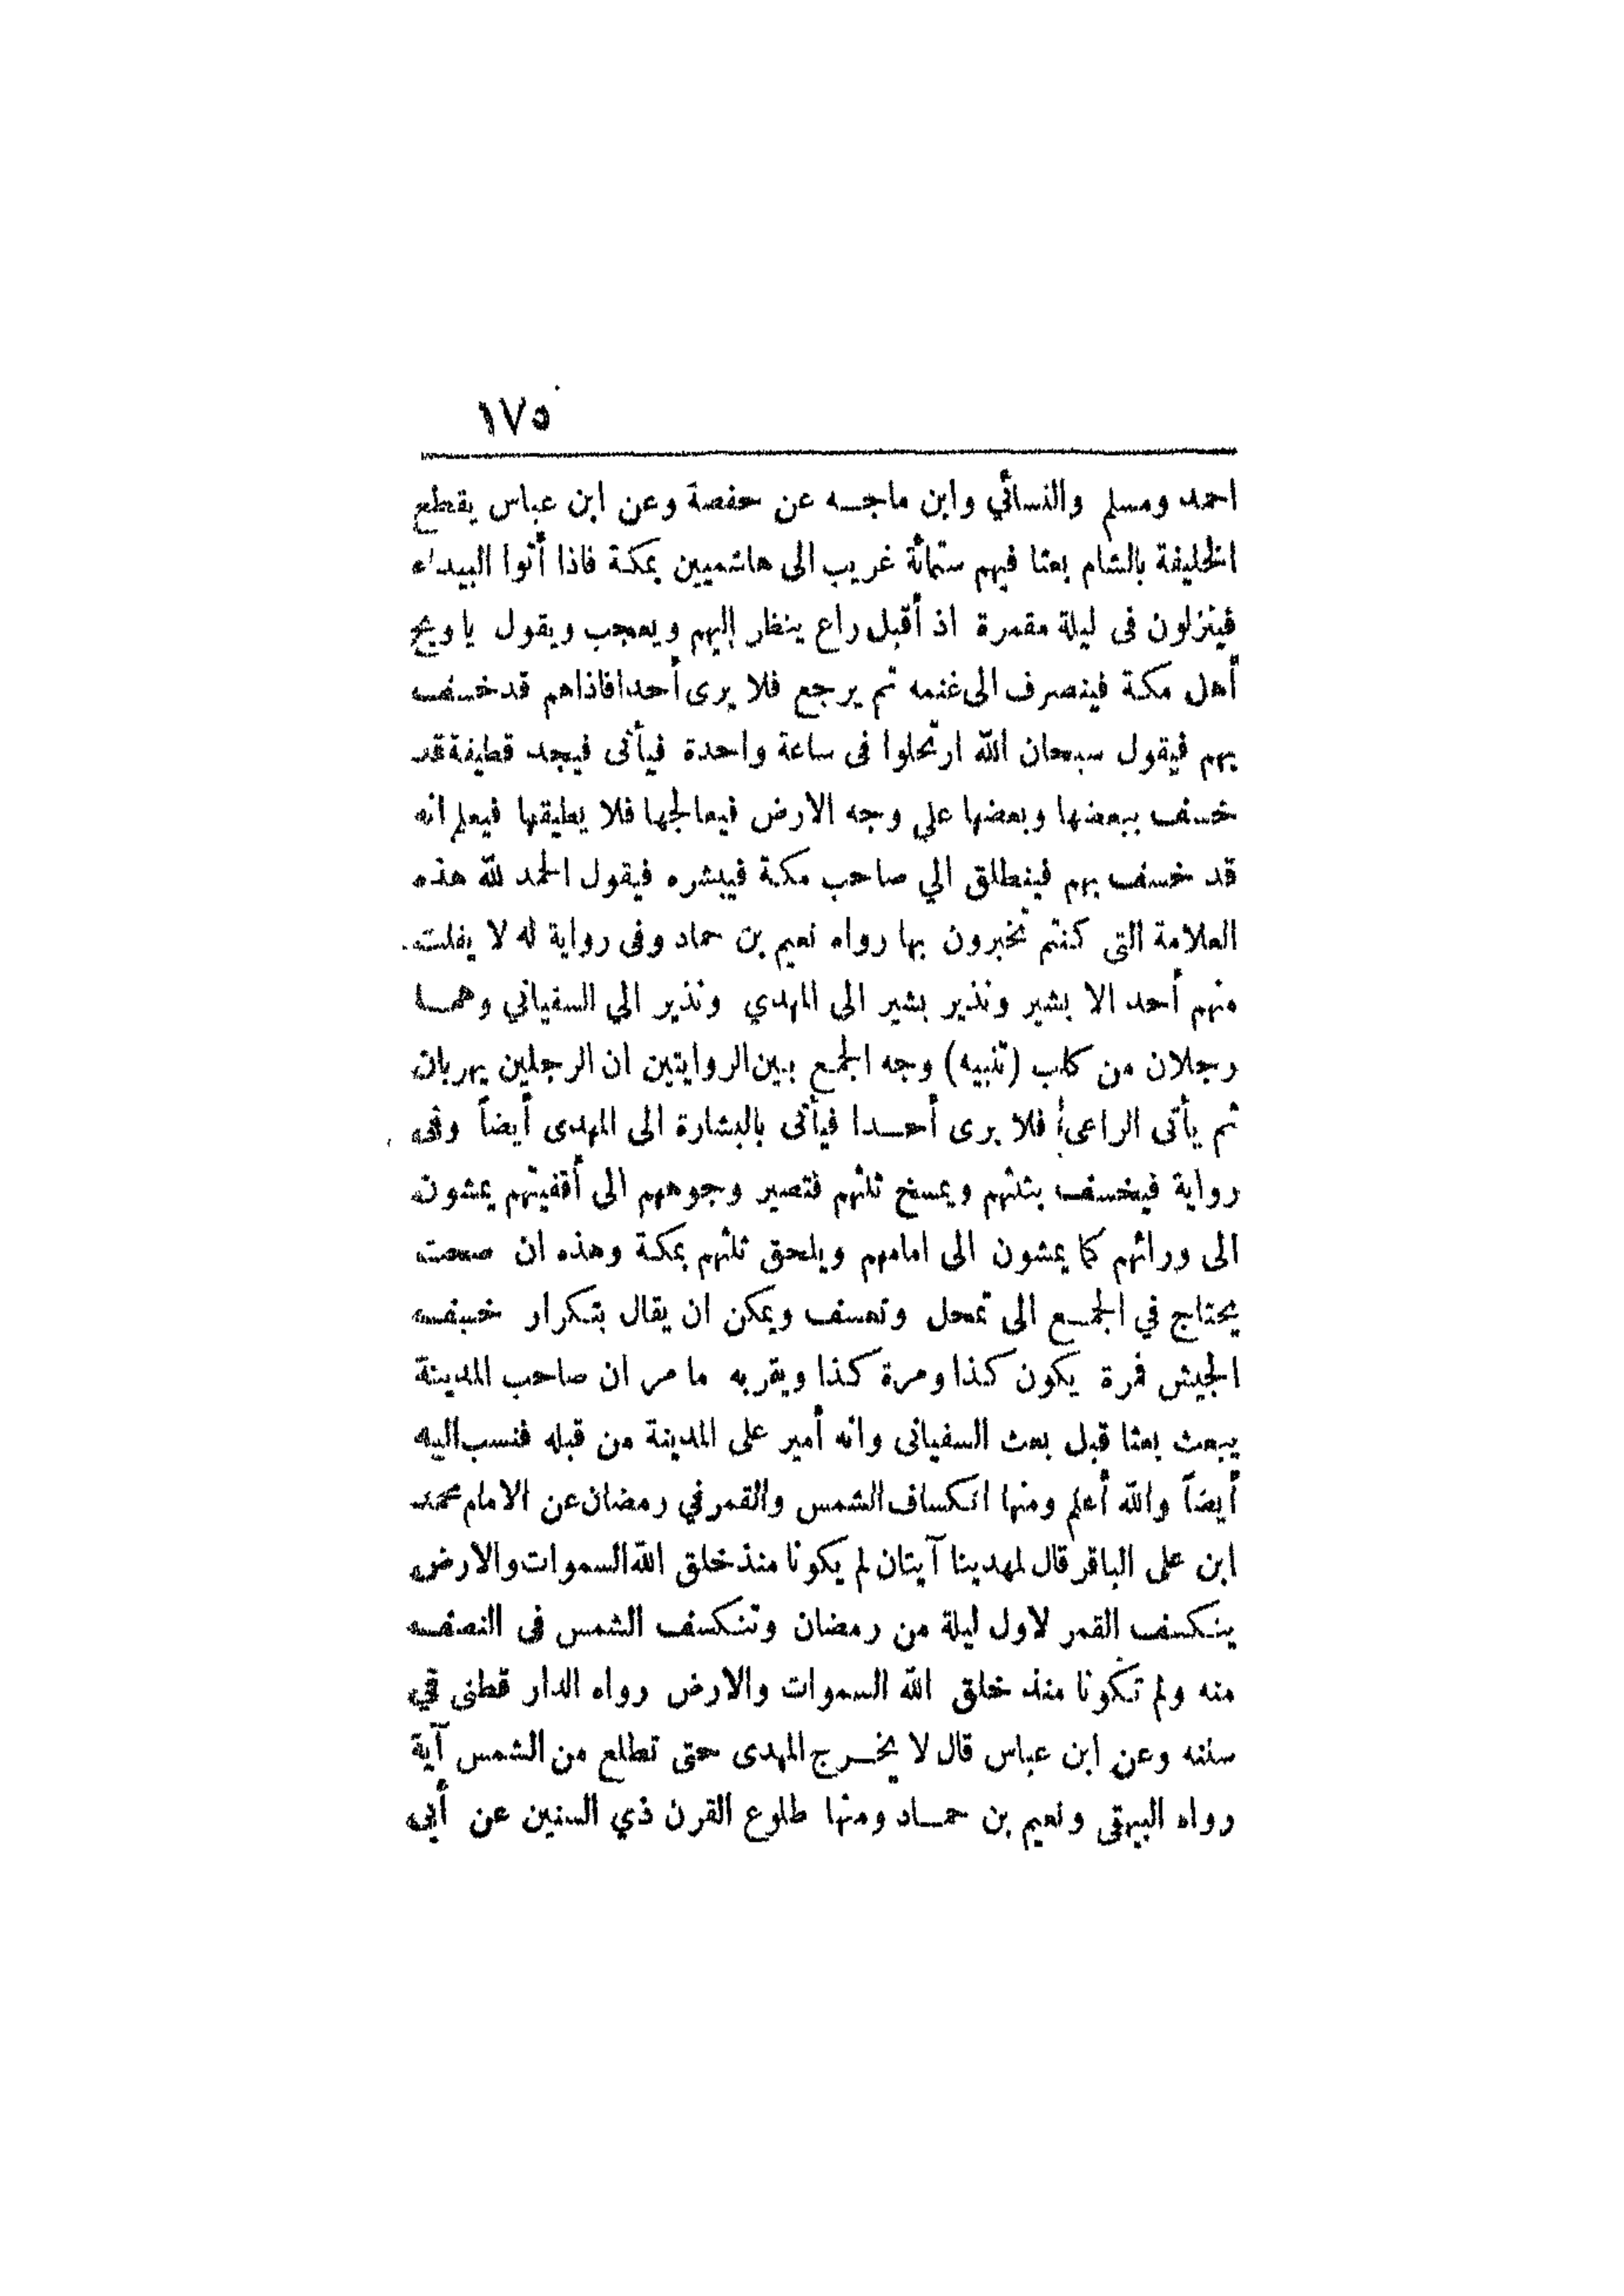 ١٧٥
احمد ومسلم والنسائي وابن ماجه عن حفصة وعن ابن عباس يقطع
الخليفة بالشام بعثا فيهم ستمائة غريب الى هاشميين بمكة فاذا أتوا البيداء
فينزلون فى ليلة مقمرة اذ أقبل راع ينظر إليهم ويعجب ويقول يا ويح
أهل مكة فينصرف الى غنمه ثم يرجع فلا يرى أحدا فاذاهم قد خسف
بهم فيقول سبحان الله ارتحلوا فى ساعة واحدة فيأتى فيجد قطيفة قد
خسف ببعضها وبعضها علي وجه الارض فيعالجها فلا يطيقها فيعلم انه
قد خسف بهم فينطلق الي صاحب مكة فيبشره فيقول الحمد لله هذه
العلامة التى كنتم تخبرون بها رواه نعيم بن حماد وفى رواية له لا يفلت
منهم أحد الا بشير ونذير بشير الى المهدي ونذير الي السفياني وهما
رجلان من كلب (تنبيه) وجه الجمع بين الروايتين ان الرجلين يهربان
ثم يأتى الراعى فلا يرى أحدا فيأتى بالبشارة الى المهدى أيضاً وفى
رواية فيخسف بثلثهم ويمسخ ثلثهم فتصير وجوههم الى أقفيتهم يمشون
الى ورائهم كما يمشون الى امامهم ويلحق ثلثهم بمكة وهذه ان صحت
يحتاج في الجمع الى تمحل وتعسف ويمكن ان يقال بتكرار خسف
الجيش فمرة يكون كذا ومرة كذا ويقربه ما مر ان صاحب المدينة
يبعث بعثا قبل بعث السفيانى وانه أمير على المدينة من قبله فنسب اليه
أيضاً والله أعلم ومنها انكساف الشمس والقمر في رمضان عن الامام محمد
ابن على الباقر قال لمهدينا آيتان لم يكونا منذ خلق الله السموات والارض
ينكسف القمر لاول ليلة من رمضان وتنكسف الشمس فى النصف
منه ولم تكونا منذ خلق الله السموات والارض رواه الدار قطنى في
سننه وعن ابن عباس قال لا يخرج المهدى حتى تطلع من الشمس آية
رواه البيهقى ونعيم بن حماد ومنها طلوع القرن ذي السنين عن أبى